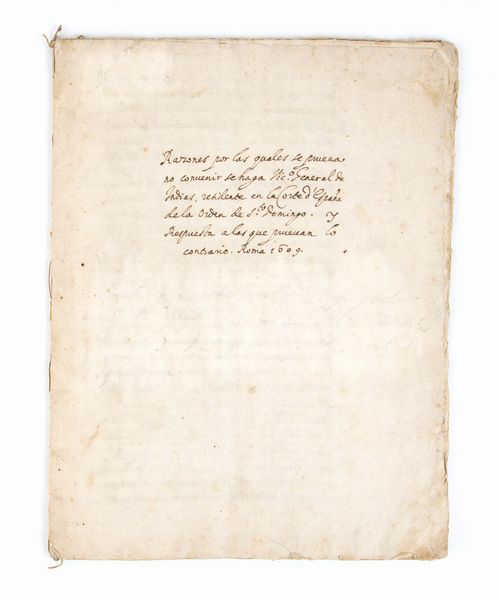 Razones por las quales se prueva
no convenir se haga Vic.º General de
Indias, residente en la Corte d'España
de la Orden de S.to Domingo. y
Respuesta a las que pruevan lo
contrario. Roma 1609.